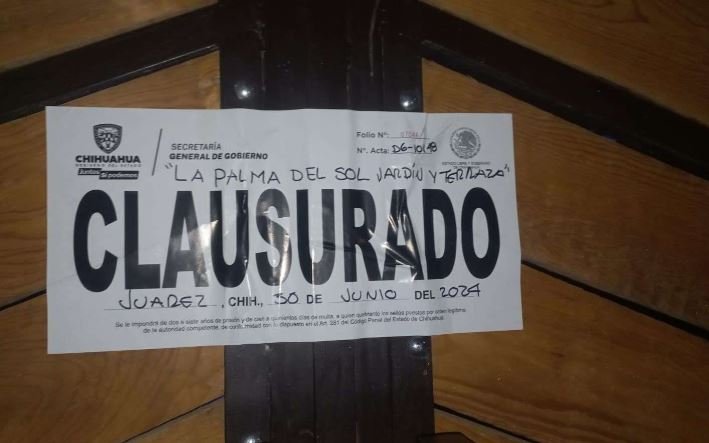 CHIHUAHUA
GOBIERNO DEL ESTADO
Juntos Sí podemos
SECRETARÍA
GENERAL DE GOBIERNO
Folio Nº:
Nº. Acta: DG-10148
ESTADO LIBRE Y SOBERANO
"LA PALMA DEL SOL JARDÍN Y TERRAZA"
CLAUSURADO
JUAREZ, CHIH., 30 DE JUNIO DEL 2024
Se le impondrá de dos a siete años de prisión y de cien a quinientos días de multa, a quien quebrante los sellos puestos por orden legítima
de la autoridad competente, de conformidad con lo dispuesto en el Art. 281 del Código Penal del Estado de Chihuahua.